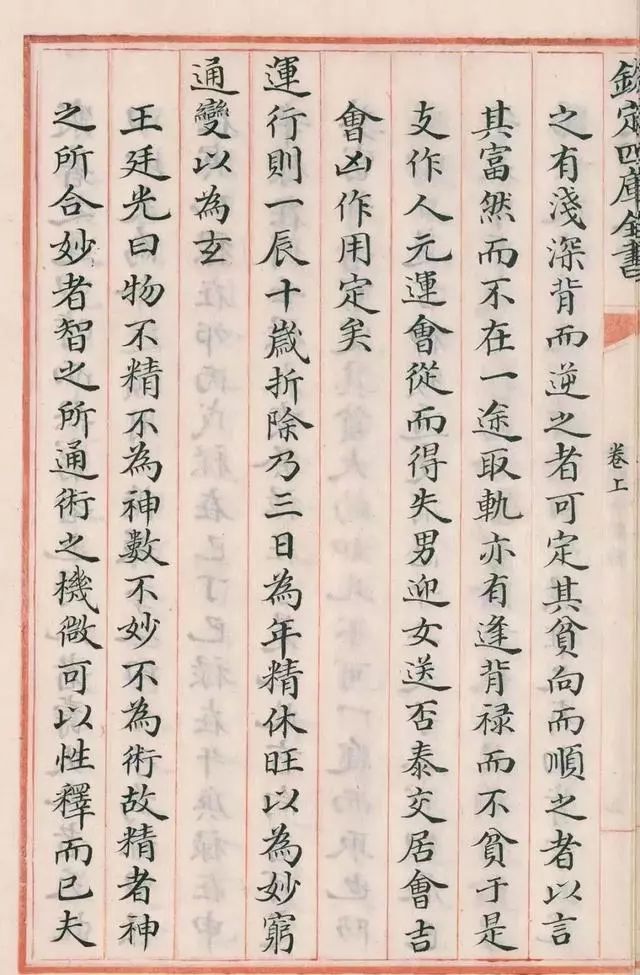 欽定四庫全書
卷上
之有淺深背而逆之者可定其貧向而順之者以言
其富然而不在一途取軌亦有逢背禄而不貧于是
支作人元運會從而得失男迎女送否泰交居會吉
會凶作用定矣
運行則一辰十歲折除乃三日為年精休旺以為妙窮
通變以為玄
王廷光曰物不精不為神數不妙不為術故精者神
之所合妙者智之所通術之機微可以性釋而已夫